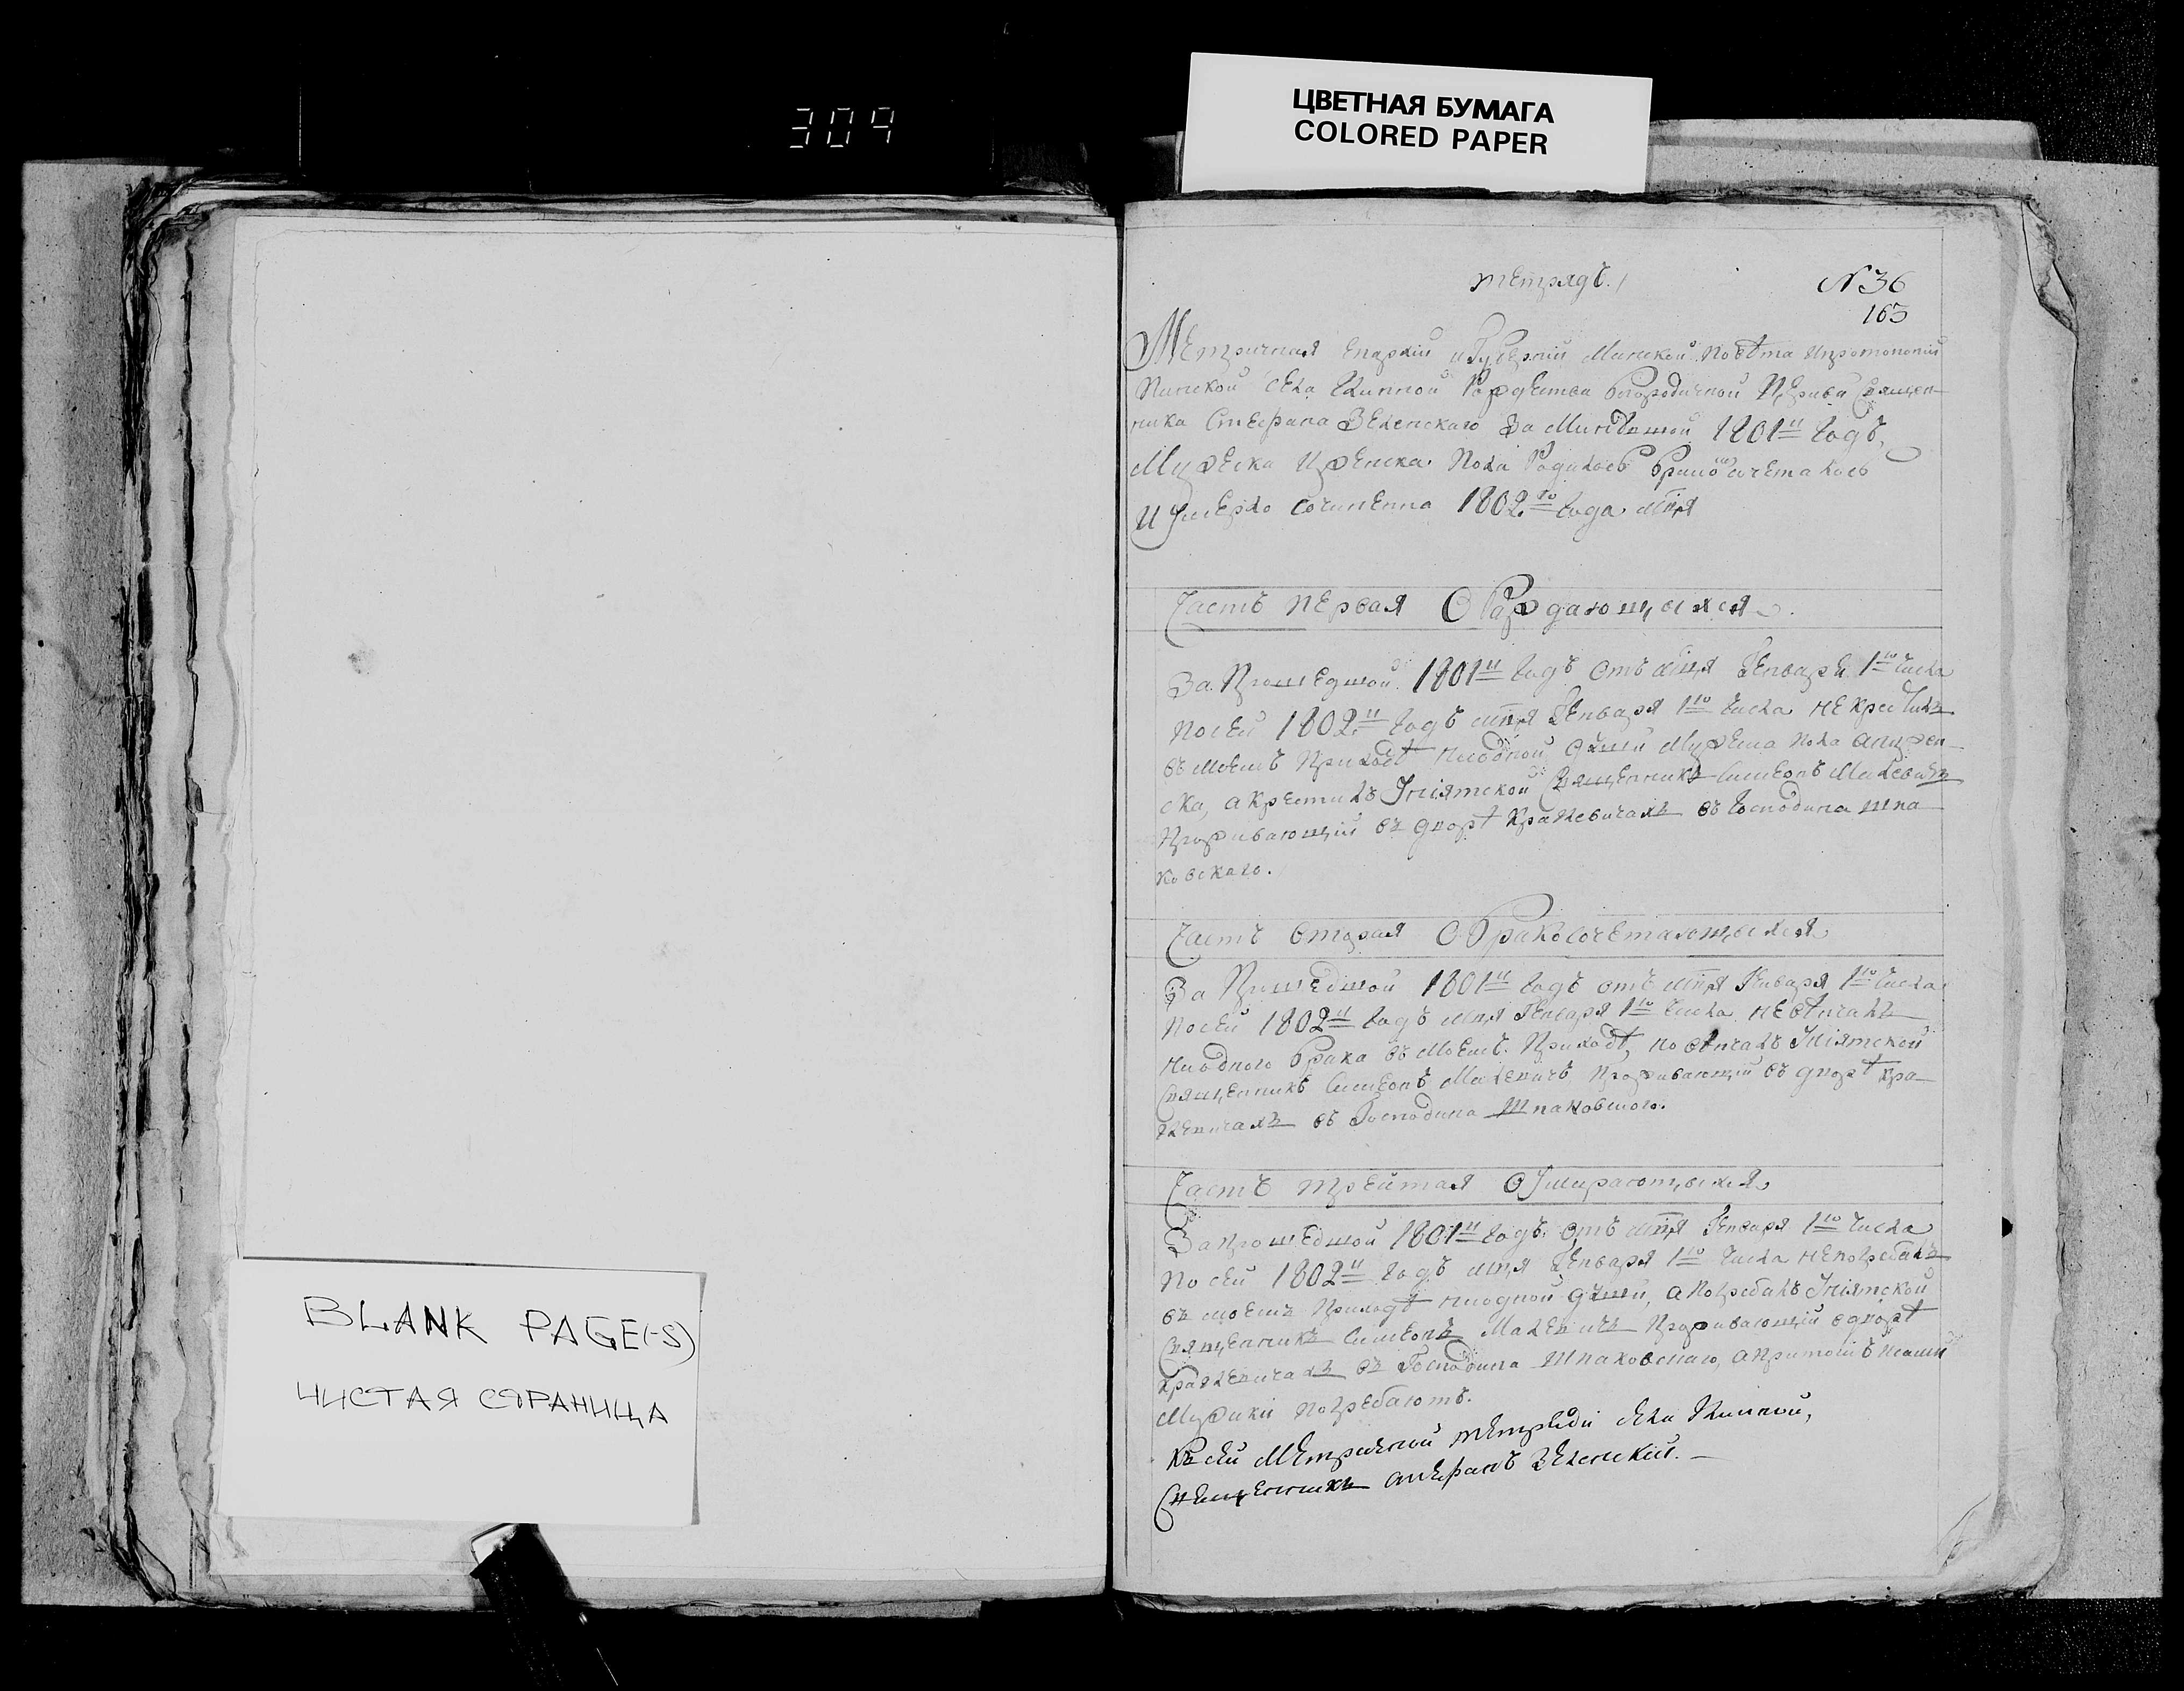 309
ЦВЕТНАЯ БУМАГА
COLORED PAPER
BLANK PAGE(-S)
ЧИСТАЯ СТРАНИЦА
тетрадъ.
N 36
163
Метричная епархіи и Губерніи Минской повѣта и протопопіи
Пинской села Рождества Богородичной Церкви Священ-
ника Стефана Зеленскаго За 1801й годъ,
Мужеска и женска пола
и сочиненна 1802го года мця
Часть первая О Раждающихся.
За прошедшой 1801й годъ отъ мця Генваря 1го числа
по сей 1802й годъ мця Генваря 1го числа не крестилъ
въ моемъ приходѣ ниодной дѣши мужеска пола а ни жен-
ска, а крестилъ Уніятской Священникъ Симеонъ
проживающій въ дворѣ въ Господина Шпа
ковскаго.
Часть вторая О Бракосочетающихся
За прошедшой 1801й годъ отъ мця Генваря 1го числа
по сей 1802й годъ мця Генваря 1го числа не вѣнчалъ
ниодного брака въ моемъ приходѣ, но вѣнчалъ Уніятской
Священникъ Симеонъ проживающій въ дворѣ
въ Господина Шпаковского.
Часть трейтая О Умирающихся
За прошедшой 1801й годъ отъ мця Генваря 1го числа
по сей 1802й годъ мця Генваря 1го числа не погребалъ
въ моемъ приходѣ ниодной дѣши, а погребалъ Уніятской
Священникъ Симеонъ проживающій в дворѣ
въ Господина Шпаковскаго, а притомъ
Мужики погребаютъ.
Къ сей Метричной тетради села
Священникъ Стефанъ Зеленский.